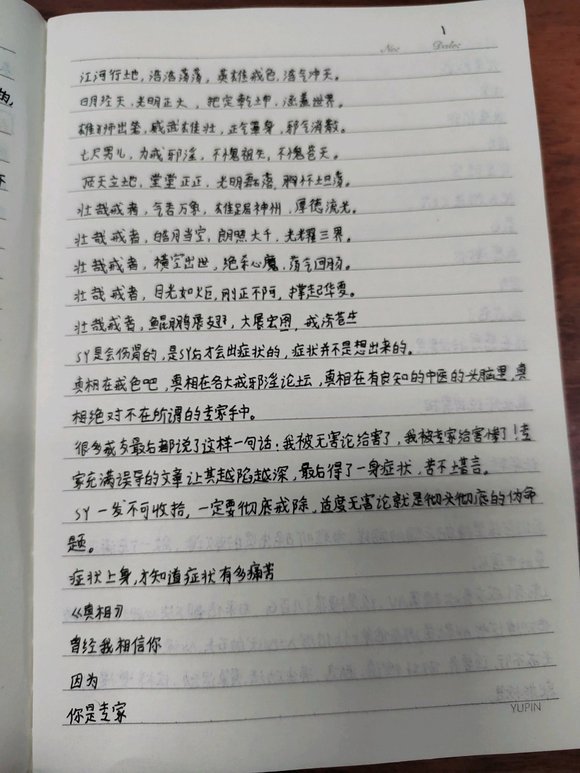 1
No:
Date:
江河行地，浩浩荡荡，英雄戒色，浩气冲天。
日月经天，光明正大，把定乾坤，涵盖世界。
雄狮出窟，威武雄壮，正气罩身，邪气消散。
七尺男儿，力戒邪淫，不愧祖先，不愧苍天。
顶天立地，堂堂正正，光明磊落，胸怀坦荡。
壮哉戒者，气吞万象，雄踞神州，厚德流光。
壮哉戒者，皓月当空，朗照大千，光耀三界。
壮哉戒者，横空出世，绝杀心魔，荡气回肠。
壮哉戒者，目光如炬，刚正不阿，撑起华夏。
壮哉戒者，鲲鹏展翅，大展宏图，戒济苍生
SY是会伤肾的，是SY后才会出症状的，症状并不是想出来的。
真相在戒色吧，真相在各大戒邪淫论坛，真相在有良知的中医的头脑里，真
相绝对不在所谓的专家手中。
很多戒友最后都说了这样一句话：我被无害论给害了，我被专家给害惨了！专
家充满误导的文章让其越陷越深，最后得了一身症状，苦不堪言。
SY一发不可收拾，一定要彻底戒除，适度无害论就是彻头彻底的伪命
题。
症状上身，才知道症状有多痛苦
《真相》
曾经我相信你
因为
你是专家
YUPIN